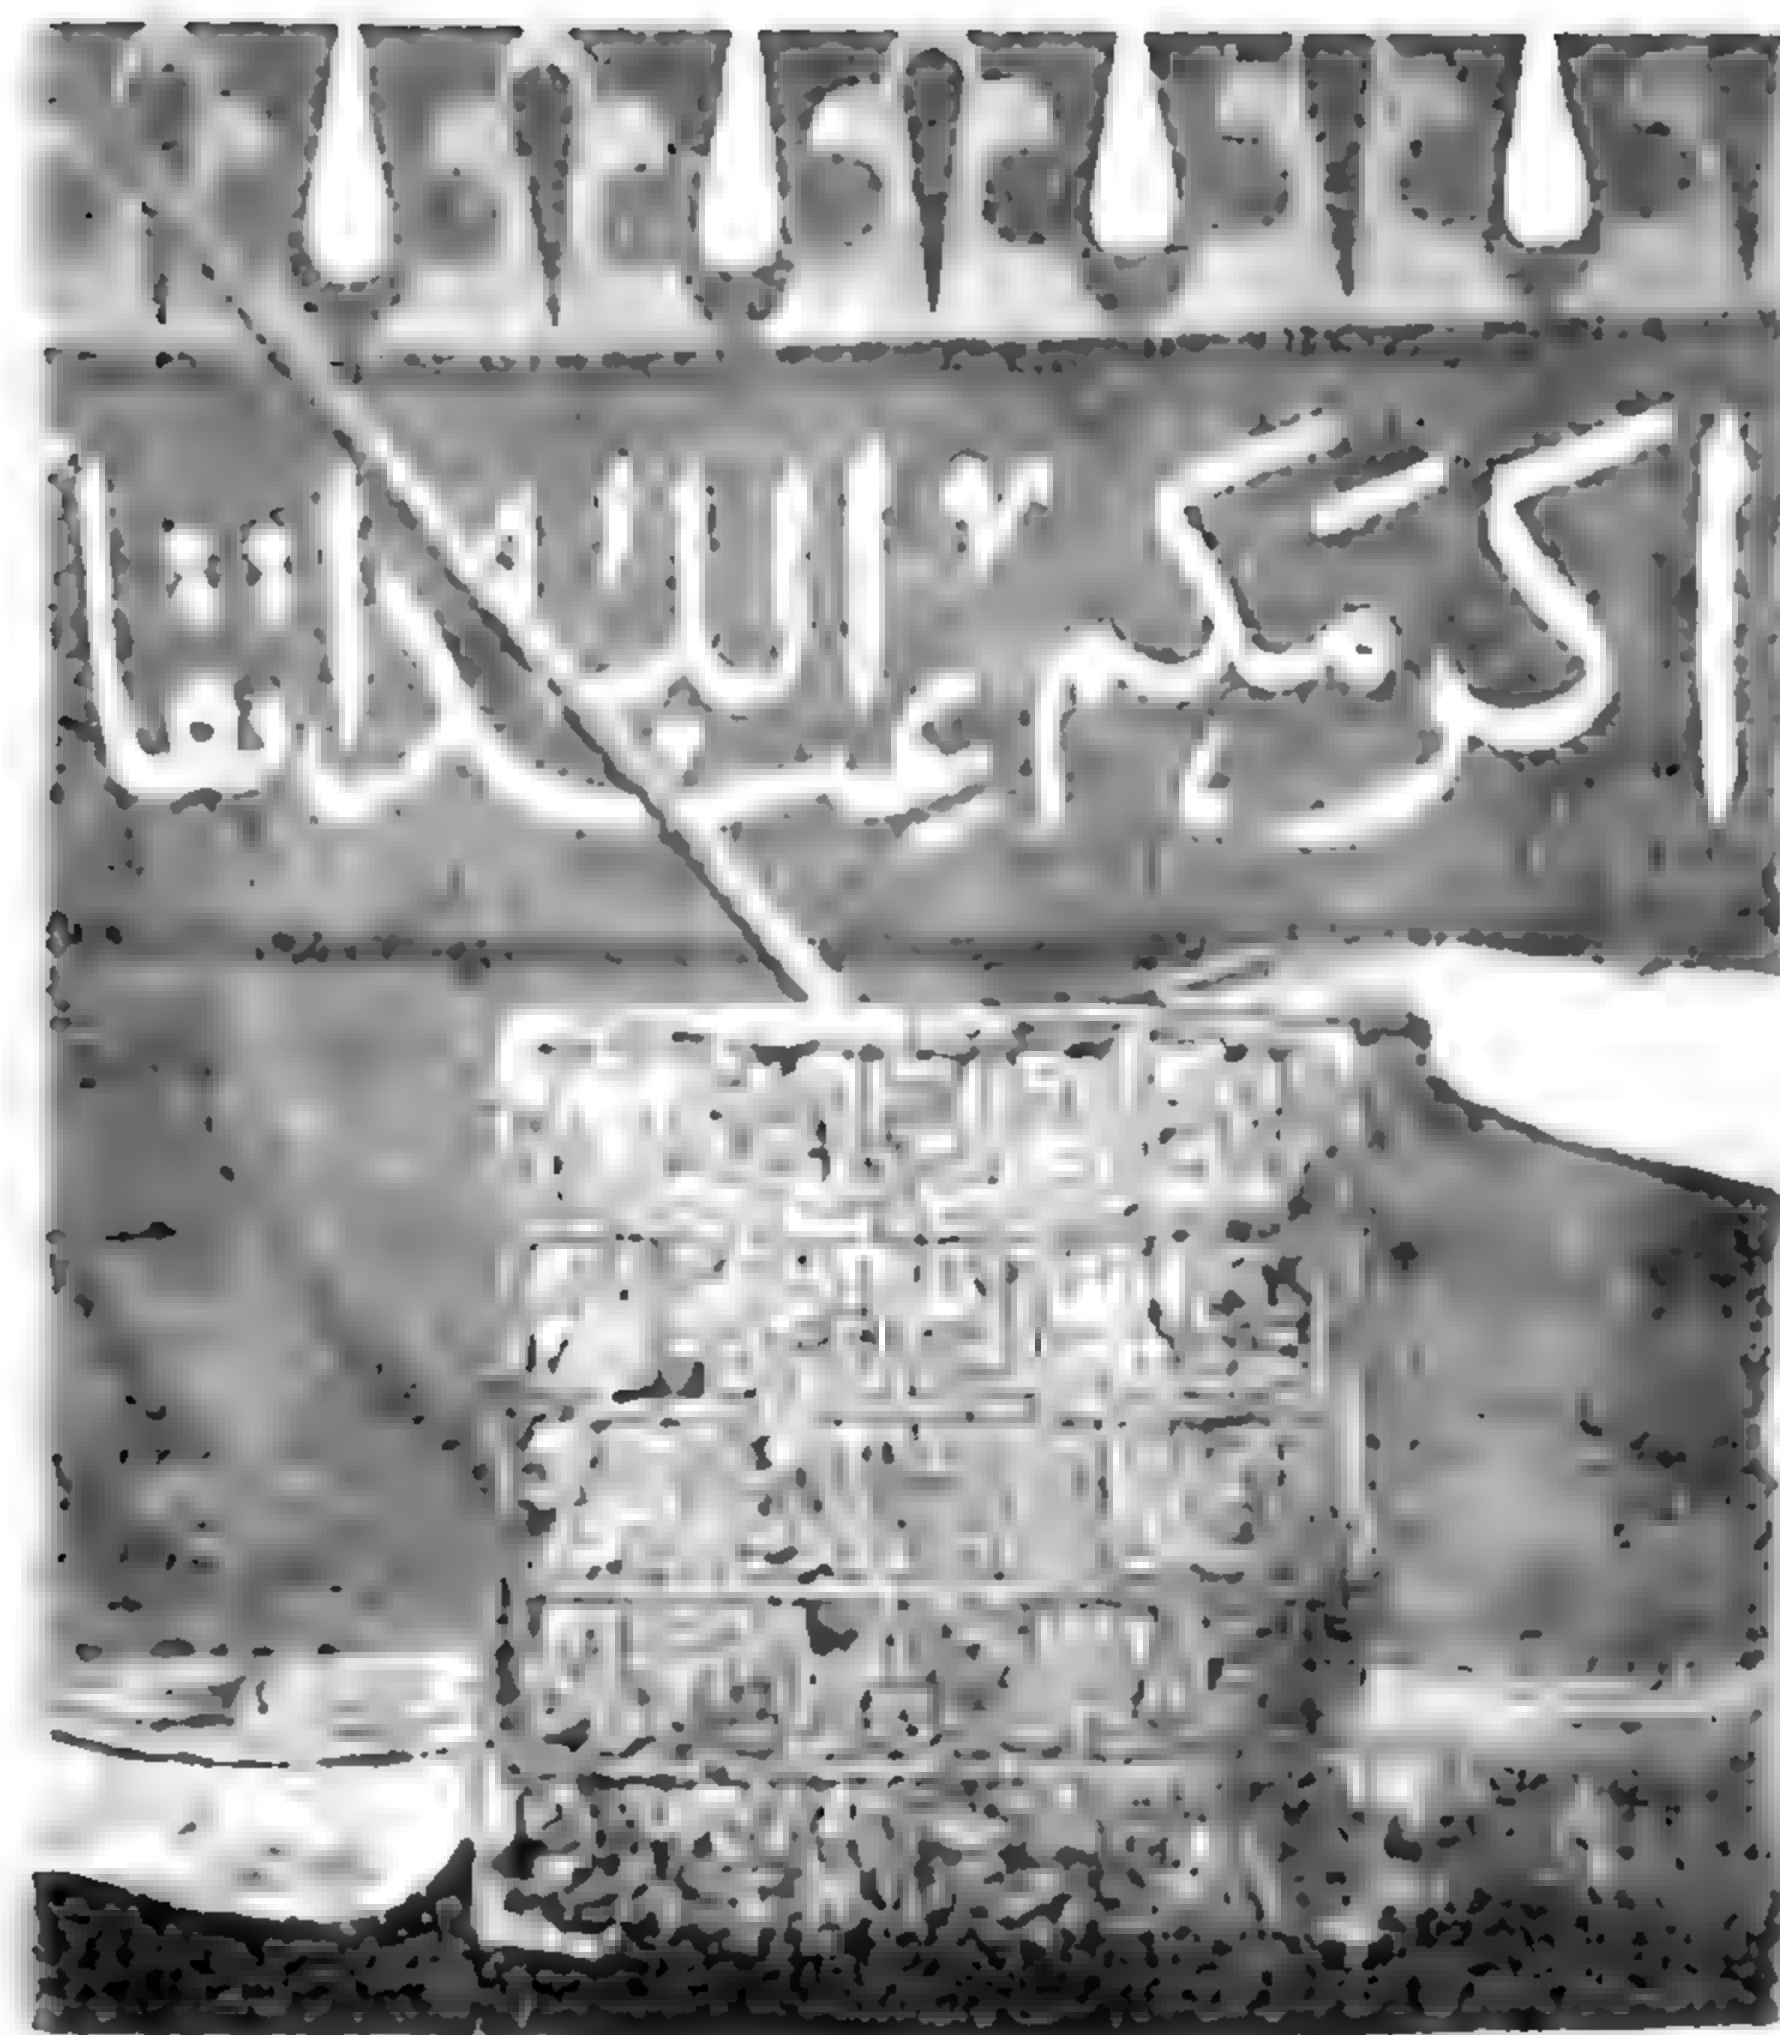 اكرمكم عند الله اتقا